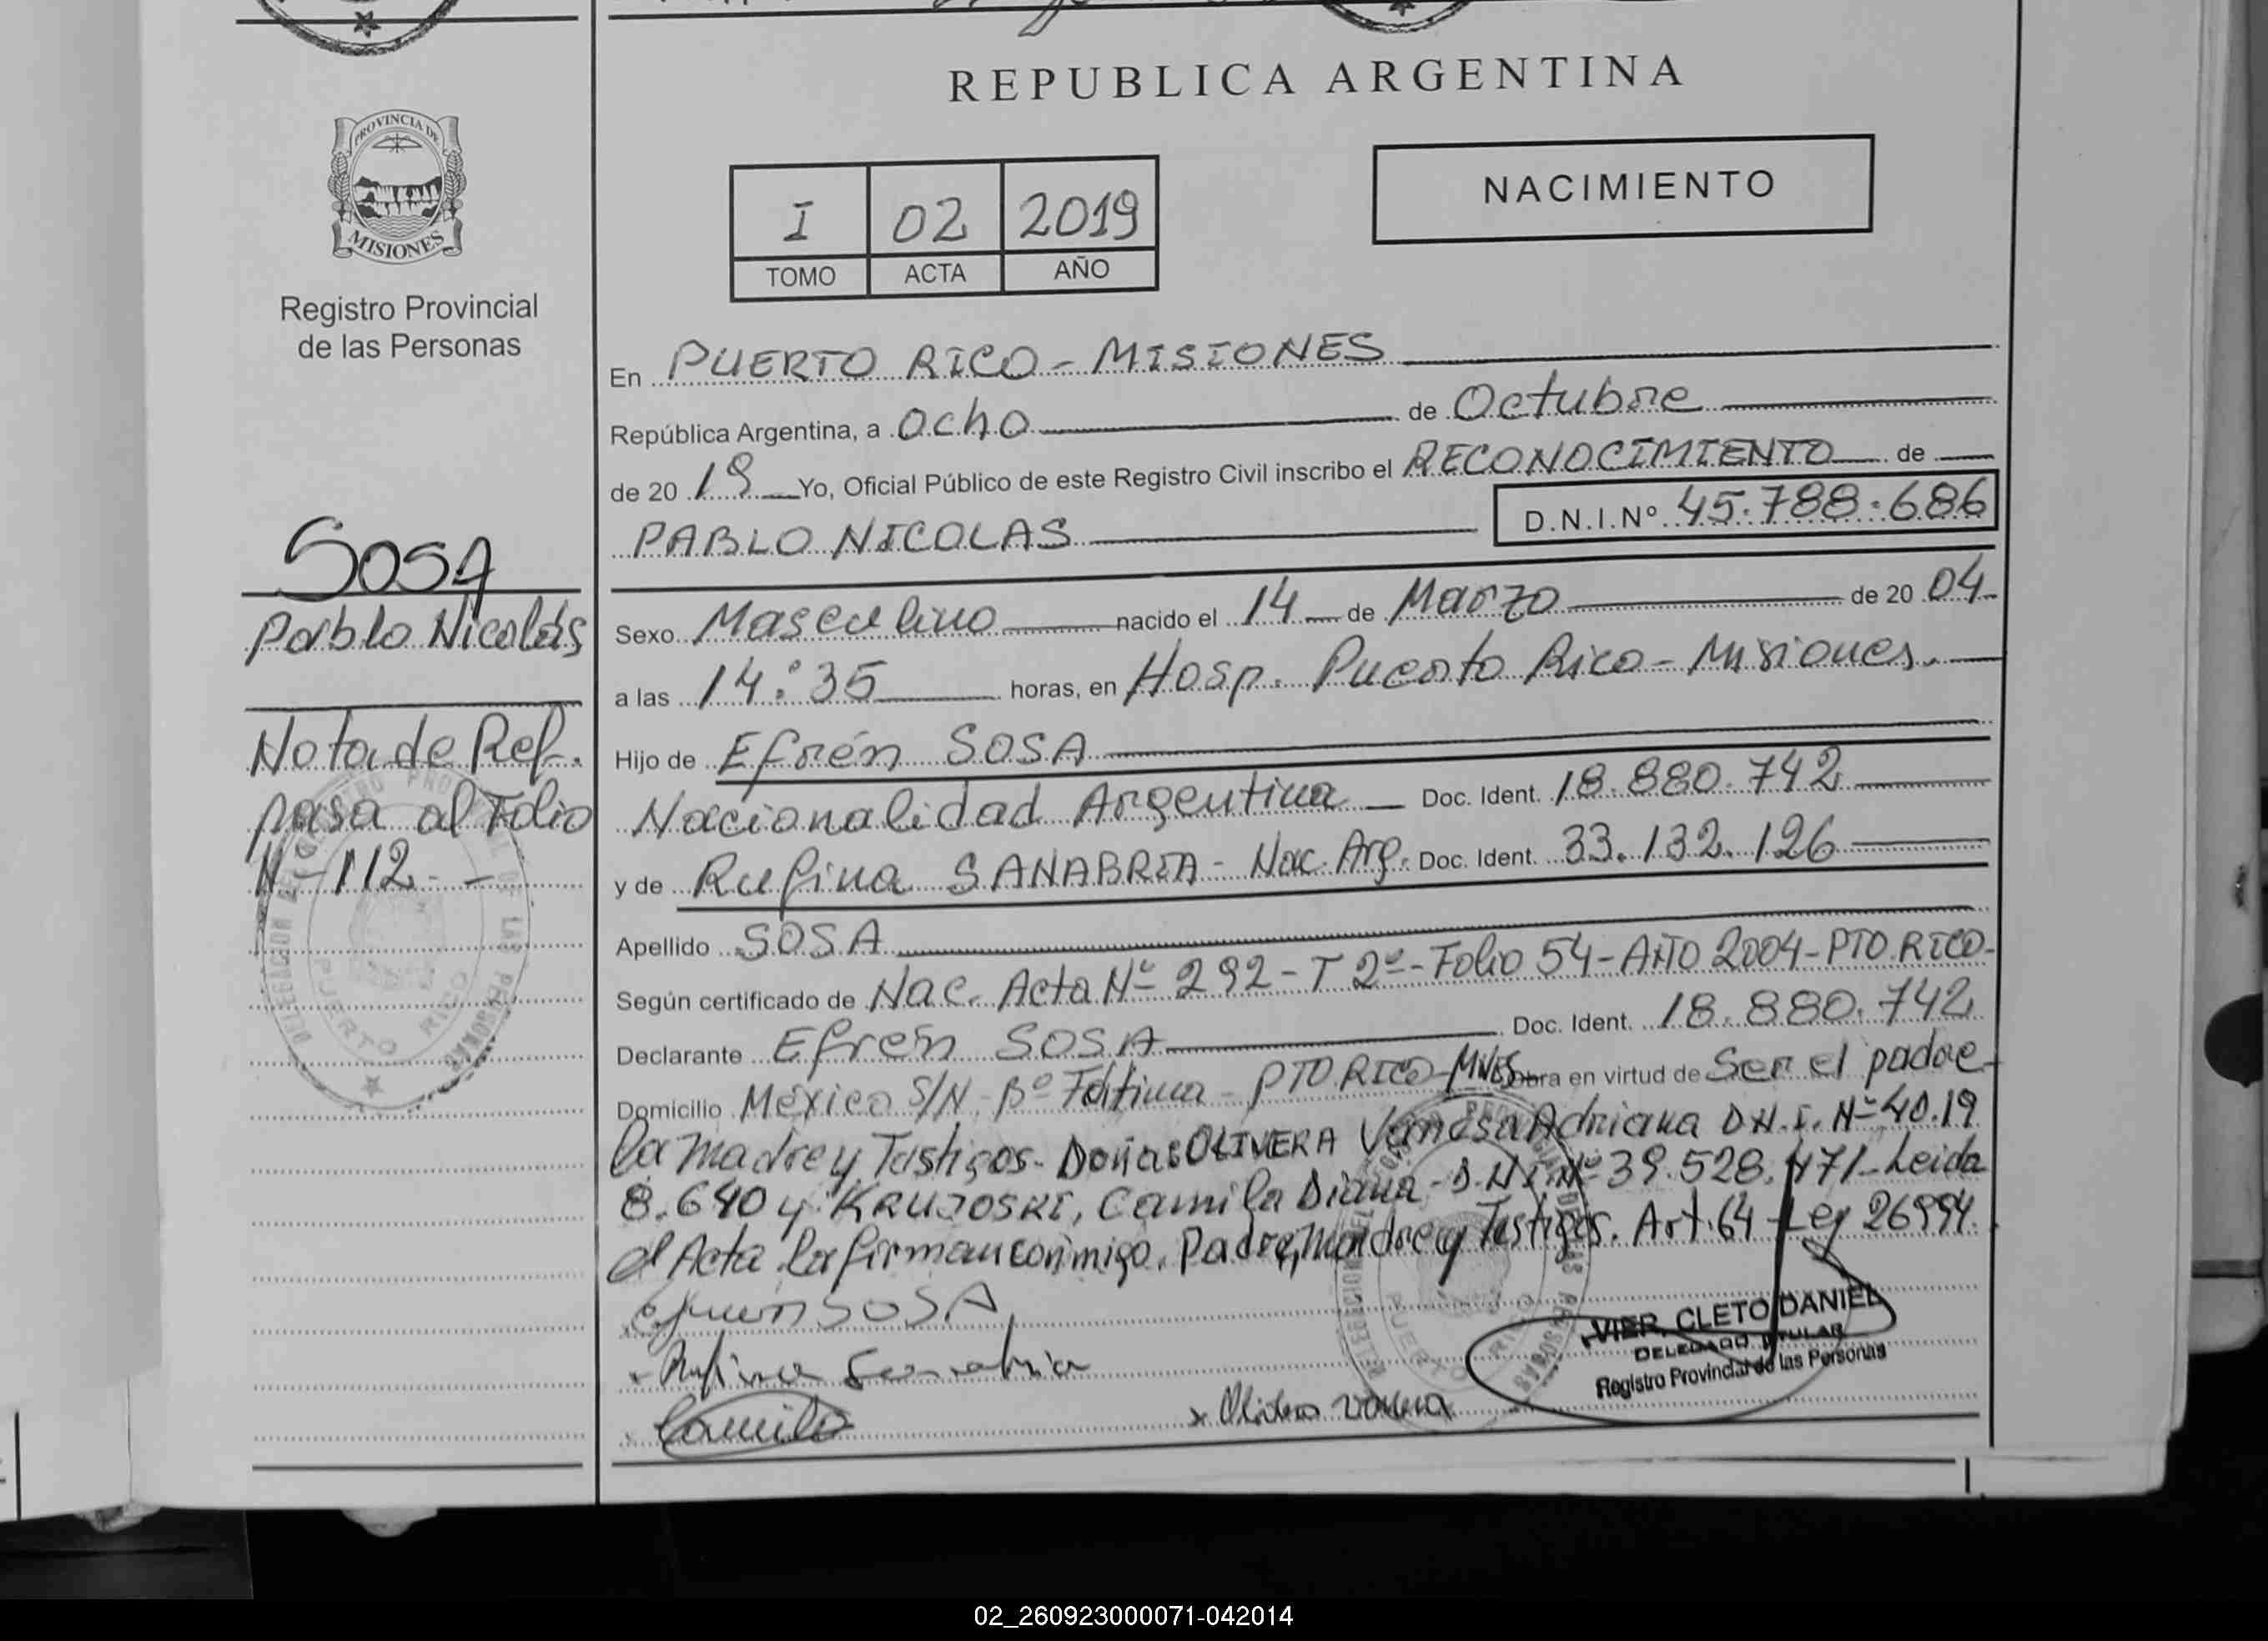 REPUBLICA ARGENTINA
PROVINCIA DE
MISIONES
Registro Provincial
de las Personas
NACIMIENTO
I 02 2019
TOMO ACTA AÑO
En PUERTO RICO - MISIONES
República Argentina, a ocho de Octubre
de 20 19 Yo, Oficial Público de este Registro Civil inscribo el RECONOCIMIENTO de
PABLO NICOLAS D.N.I.Nº 45.788.686
SOSA
Pablo Nicolás
Sexo Masculino nacido el 14 de Marzo de 20 04
a las 14:35 horas, en Hosp. Puerto Rico - Misiones.
Nota de Ref.
pasa al Folio
Nº 112 -
Hijo de Efrén SOSA
Nacionalidad Argentina Doc. Ident. 18.880.742
y de Rufina SANABRIA - Nac. Arg. Doc. Ident. 33.132.126
Apellido SOSA
Según certificado de Nac. Acta Nº 292 - T 2º - Folio 54 - AÑO 2004 - PTO RICO -
Declarante Efrén SOSA Doc. Ident. 18.880.742
Domicilio México S/N - Bº Fátima - PTO RICO - MNES Obra en virtud de Ser el padre
la madre y Testigos - Doñas OLIVERA Vanesa Adriana D.N.I. Nº 40.19
8.640 y KRUJOSKI, Camila Diana - D.N.I. Nº 39.528.471 - Leida
el Acta la firman conmigo, Padre, Madre y Testigos. Art. 64 - Ley 26994.
Efren SOSA
Rufina Sanabria
Camila
x Olivera vanesa
VIER, CLETO DANIEL
DELEGADO TITULAR
Registro Provincial de las Personas
02_260923000071-042014